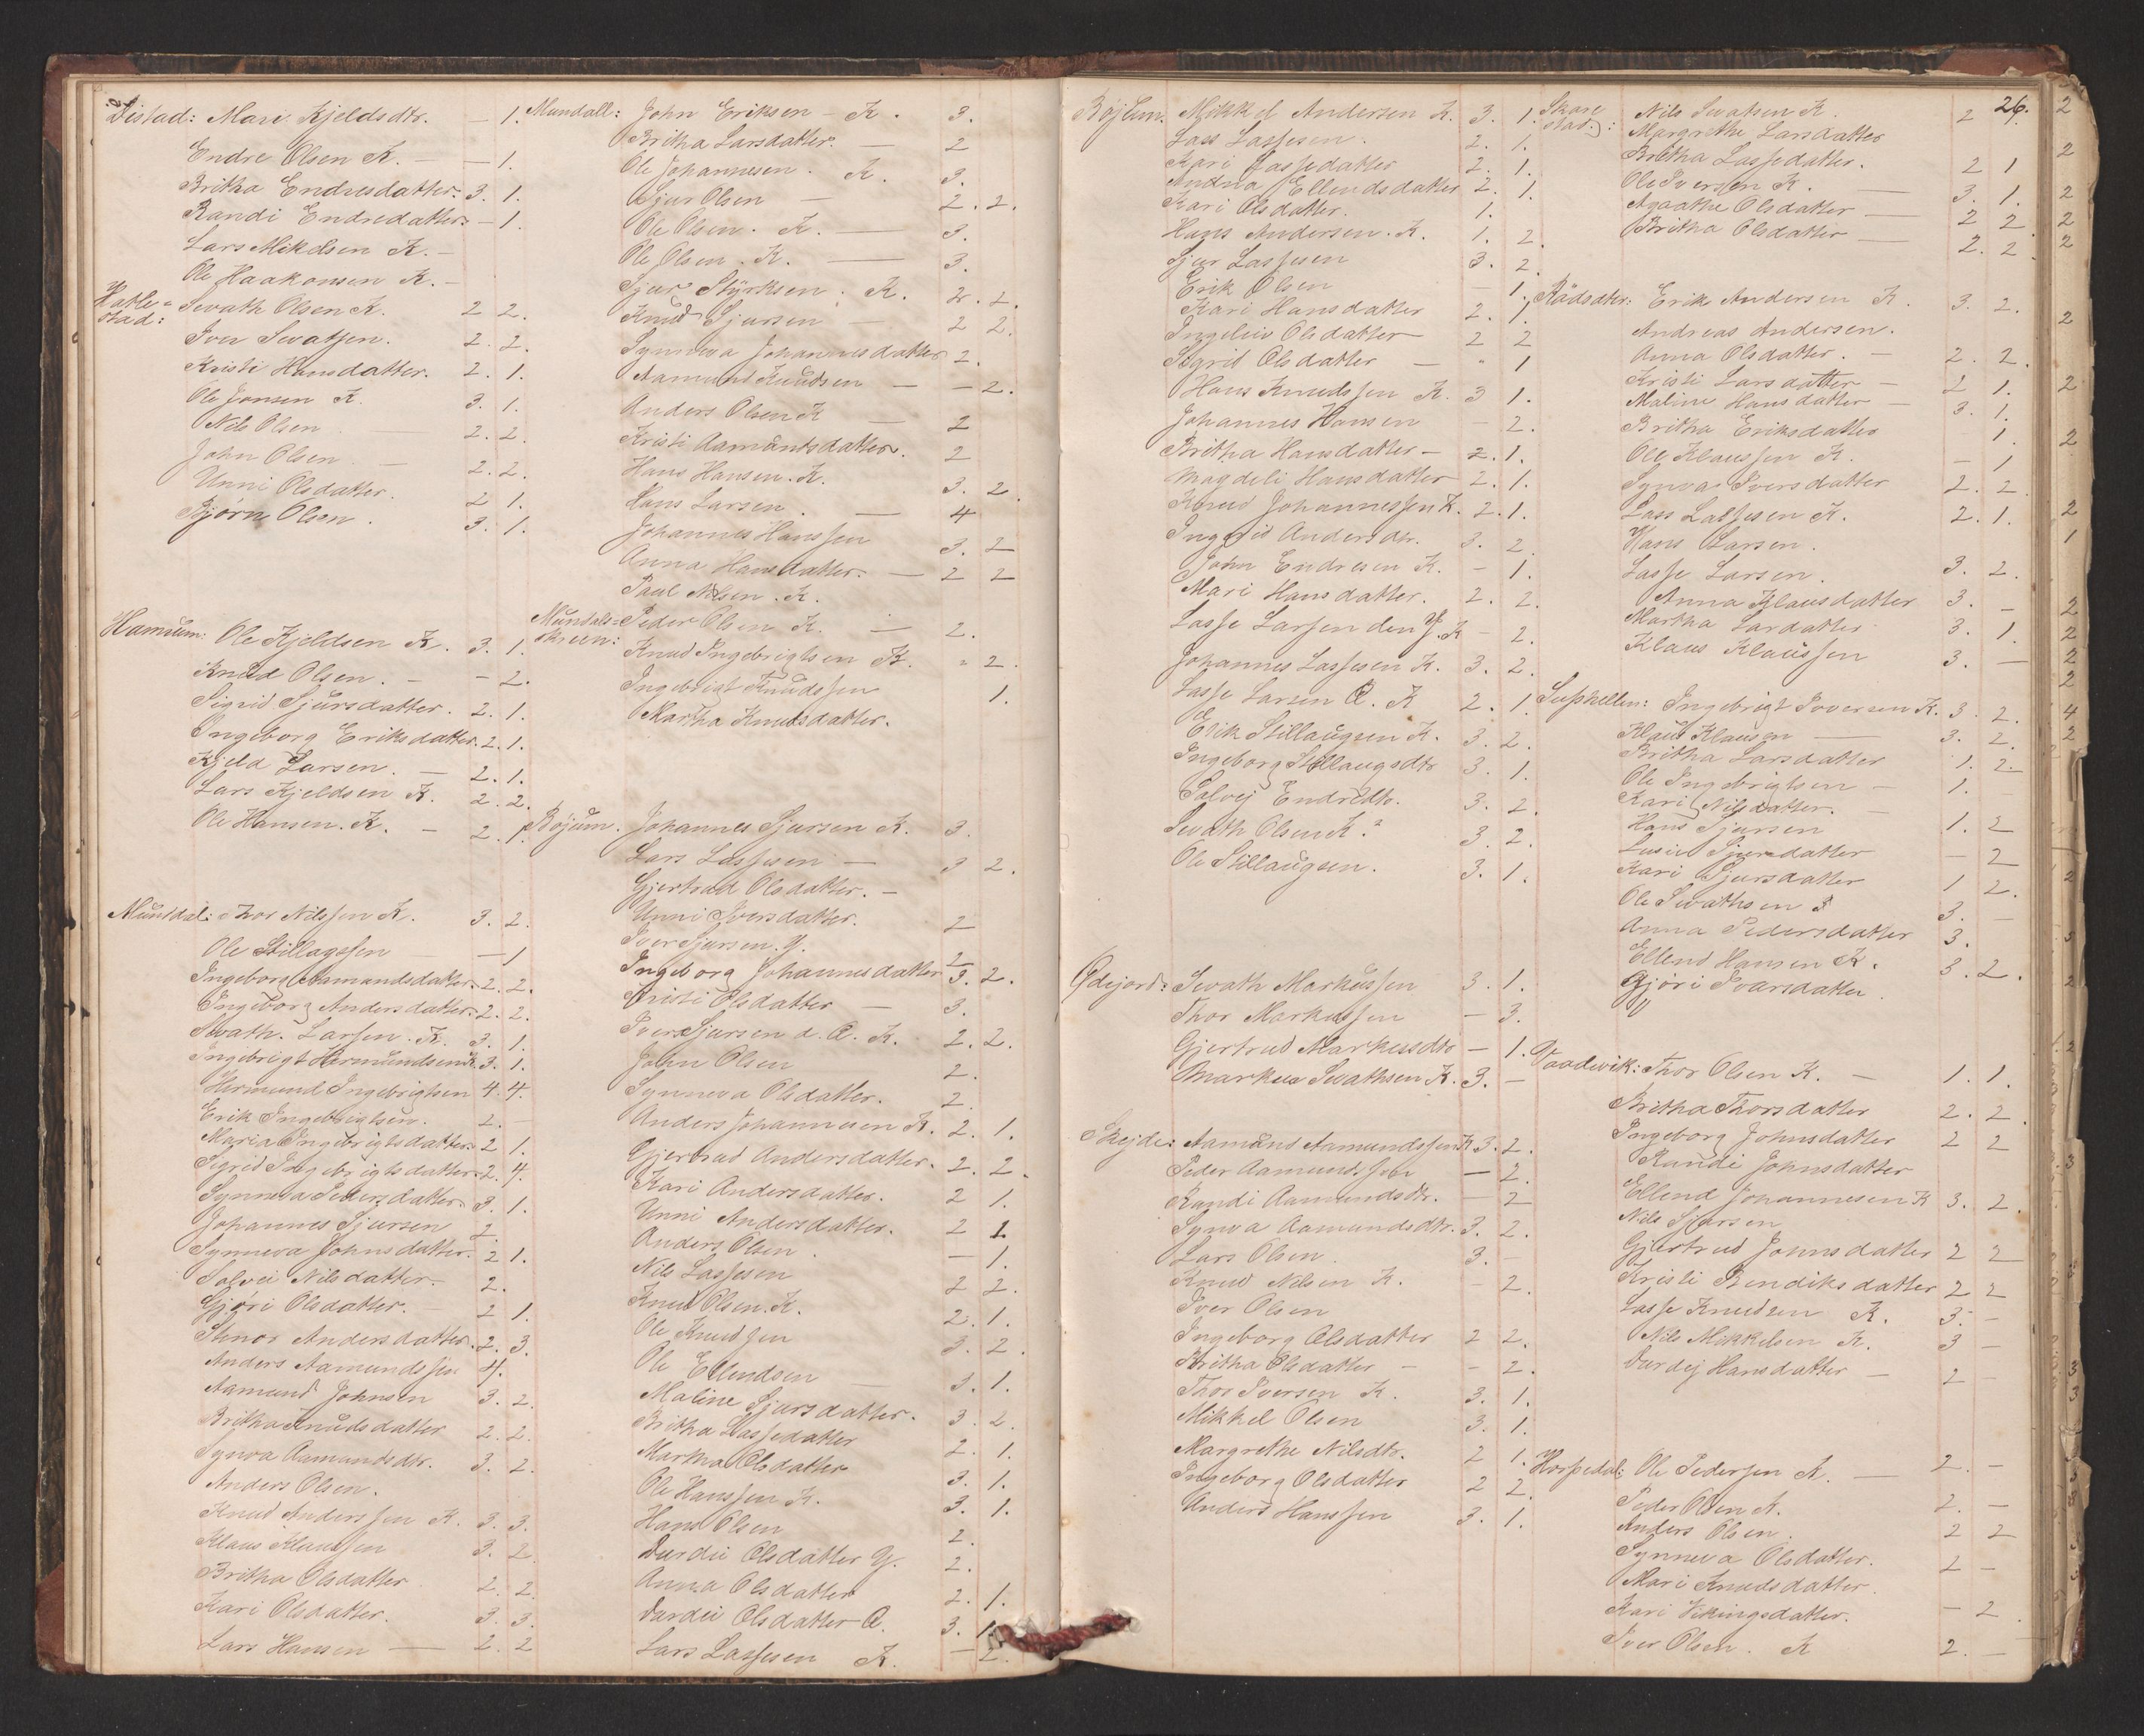 Distad: Mari Kjeldsdtr. — 1.
Endre Olsen K. — — 1.
Britha Endresdatter. 3. 1.
Randi Endredatter. — 1.
Lars Mikelsen K. —
Ole Haakonsen K. —
Hatle=
stad: Sevath Olsen K. 2 2.
Iver Sevatsen. 2. 2.
Kristi Hansdatter. 2. 1.
Ole Jonsen K. 3. 1.
Nils Olsen 2. 2.
John Olsen. — 2. 2.
Unni Olsdatter. 2 1.
Bjørn Olsen. 3. 1.
Hamrum: Ole Kjeldsen K. 3. 1.
Knud Olsen. — — 2.
Sigrid Sjursdatter. 2. 1.
Ingeborg Eriksdatter. 2. 1.
Kjeld Larsen. — 2. 1.
Lars Kjeldsen K. 2. 2.
Ole Hansen. K. — 2. 1.
Mundal: Thor Nilssen K. 3. 2.
Ole Stillagssen — 1
Ingeborg Aamundsdatter. 2. 2.
Ingeborg Andersdatter. 2. 2.
Sevath. Larsen. K. 3. 1.
Ingebrigt Hermundsen K. 3. 1.
Hermund Ingebrigtsen 4. 4.
Erik Ingebrigtsen. 2. —
Maria Ingebrigtsdatter. 2 1.
Sigrid Ingebrigtsdatter. 2. 4.
Synneva Pedersdatter. 3. 1.
Johannes Sjursen 2.
Synneva Johnsdatter. 2 1.
Salvei Nilsdatter. 2.
Gjøri Olsdatter. — 2 1.
Stinor Andersdatter. 2. 3.
Anders Aamundssen 4.
Aamund Johnsen 3. 2.
Britha Knudsdatter 2. 2.
Synva Aamundsdtr. 3. 2.
Anders Olsen.
Knud Anderssen K. 3. 3.
Klaus Klaussen 3. 2.
Britha Olsdatter 2. 2.
Kari Olsdatter. 3. 3.
Lars Hansen — 2. 2
Mundall: John Eriksen — K. 3.
Britha Larsdatter. — 2
Ole Johannesen. K. 3.
Sjur Olsen — 2. 2.
Ole Olsen. K. — 3.
Ole Olsen. K. — 3.
Sjur Styrksen. K. 2. 2.
Knud Sjursen — 2 2.
Synneva Johannesdatter 2.
Aamund Knudsen — — 2.
Anders Olsen K — 2
Kristi Aamundsdatter. 2
Hans Hansen. K. 3. 2.
Hans Larsen. — 4
Johannes Hanssen 3. 2
Anna Hansdatter. — 2 2
Paul Nilsen. K.
Mundals=
skreen: Peder Olsen K. — 2.
Knud Ingebrigtsen K. " 2.
Ingebrigt Knudssen 1.
Martha Knudsdatter.
Bøjum. Johannes Sjursen K. 3.
Lars Lassesen — 3 2.
Gjertrud Olsdatter. —
Unni Iversdatter. 2
Iver Sjursen. Y. 2
Ingeborg Johannesdatter 3. 2.
Kristi Olsdatter — 3.
Iver Sjursen d. Æ. K. 2. 2.
John Olsen 2.
Synneva Olsdatter. 2.
Anders Johannesen K. 2. 1.
Gjertrud Andersdatter. 2. 2.
Kari Andersdatter. 2 1.
Unni Andersdatter. 2 1.
Anders Olsen. — 1.
Nils Lassesen 2 2.
Knud Olsen. K. 2. 1.
Ole Knudssen 3. 2.
Ole Ellendsen — 3. 1.
Maline Sjursdatter. 3. 2.
Britha Lassedatter 2. 1.
Martha Olsdatter 3. 1.
Ole Hanssen K. 3. 1.
Hans Olsen 2.
Durdei Olsdatter Y. 2.
Anna Olsdatter 2. 1.
Durdei Olsdatter Æ. 3. 1.
Lars Lassesen K. — 2.
26.
Bøjum. Mikkel Andersen K. 3. 1.
Lass Lassesen. 2. 1.
Kari Lassedatter 2. 1.
Andrea Ellendsdatter 2. 1.
Kari Olsdatter. 1.
Hans Andersen. K. 1. 2.
Sjur Lassesen 3. 2.
Erik Olsen — 1.
Kari Hansdatter 2. 1.
Ingeleiv Olsdatter 2 2
Sigrid Olsdatter — " 1
Hans Knudssen K. 3 1.
Johannes Hansen — 2.
Britha Hansdatter — 2. 1.
Magdeli Hansdatter 2. 1.
Knud Johannessen K. 2. 1.
Ingrid Andersdr. 3. 2.
John Endresen K. — 1.
Mari Hansdatter. 2. 2.
Lasse Larsen den Y. K — 2.
Johannes Lassesen K. 3. 2.
Lasse Larsen Æ. K 2. 1.
Erik Stillaugsen K. 3. 2.
Ingeborg Stillaugsdtr 3. 1.
Salvej Endredtr. 3. 2.
Sevath Olsen K. 3. 2.
Ole Stillaugsen. 3. 1.
Ødejord: Sevath Markussen 3. 1.
Thor Markussen — 3.
Gjertrud Markusdtr — 1.
Markus Sevathsen K. 3. —
Skejde: Aamund Aamundssen K 3. 2.
Peder Aamundssen — 2.
Randi Aamundsdtr. — 2
Synva Aamundsdtr. 3. 2.
Lars Olsen. 3. —
Knud Nilsen K. — 2.
Iver Olsen
Ingeborg Olsdatter 2 2.
Britha Olsdatter — — 2.
Thor Iversen K. 3. 1.
Mikkel Olsen 3. 1.
Margrethe Nilsdtr. 2 1.
Ingeborg Olsdatter 2 2.
Anders Hanssen 3. 1.
Skare
stad: Nils Sevatsen K. 2
Margrethe Larsdatter
Britha Lassedatter. 2 1
Ole Iversen K. — 3. 1.
Agaathe Olsdatter — 2 2
Britha Olsdatter — 2. 2.
Erik Andersen K. 3. 2.
Andreas Andersen.
Anna Olsdatter. — 2. 2.
Kristi Larsdatter — 2 1.
Maline Hansdatter — 3. 1.
Britha Eriksdatter 1.
Ole Klaussen K. — 1
Synva Iversdatter 2. 2.
Lass Lassesen K. 2. 1.
Hans Larsen.
Lasse Larsen. 3. 2.
Anna Klausdatter 3. —
Martha Lardatter 3. 1.
Klaus Klaussen 3. —
Supphellen: Ingebrigt Iversen K. 3. 2.
Klaus Klausen — 3. 2.
Britha Larsdatter 1. 2.
Ole Ingebrigtsen — 1. —
Kari Nilsdatter. —
Hans Sjursen 1. 2
Lusie Sjursdatter — 2
Kari Sjursdatter 1 2.
Ole Sevathsen 3. —
Anna Pedersdatter 3.
Ellend Hansen K. 3. 2.
Gjøri Ivarsdatter.
"
Vaadevik: Thor Olsen K. — 1. 1.
Britha Thorsdatter 2. 2.
Ingeborg Johnsdatter 2 2
Randi Johnsdatter
Ellend Johannesen K 3. 2.
Nils Sjursen
Gjertrud Johnsdatter 2 2
Kristi Bendiksdatter 2 2
Lasse Knudsen K. 3. —
Nils Mikkelsen K. 3 —
Durdej Hansdatter — 2 —
Horpedal: Ole Pedersen K. — 2. —
Peder Olsen K. 2. —
Anders Olsen. 2 2
Synneva Olsdatter. 2 —
Mari Knudsdatter.
Kari Vikingsdatter. — 2.
Iver Olsen. K 2. —